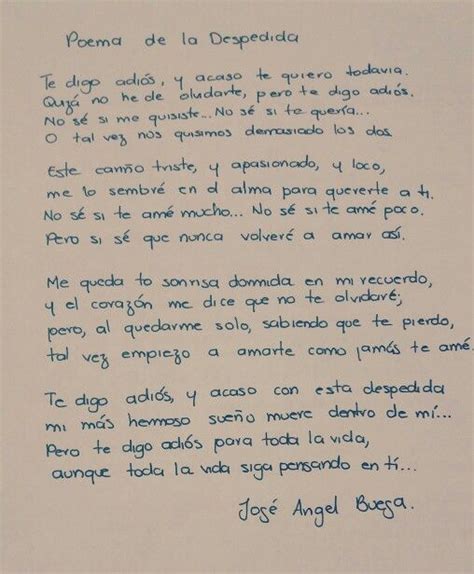 Poema de la Despedida
Te digo adiós, y acaso te quiero todavía.
Quizá no he de olvidarte, pero te digo adiós.
No sé si me quisiste... No sé si te quería...
O tal vez nos quisimos demasiado los dos.
Este cariño triste, y apasionado, y loco,
me lo sembré en el alma para quererte a ti.
No sé si te amé mucho... No sé si te amé poco.
Pero si sé que nunca volveré a amar así.
Me queda tu sonrisa dormida en mi recuerdo,
y el corazón me dice que no te olvidaré;
pero, al quedarme solo, sabiendo que te pierdo,
tal vez empiezo a amarte como jamás te amé.
Te digo adiós, y acaso con esta despedida
mi más hermoso sueño muere dentro de mí...
Pero te digo adiós para toda la vida,
aunque toda la vida siga pensando en tí...
José Angel Buesa.